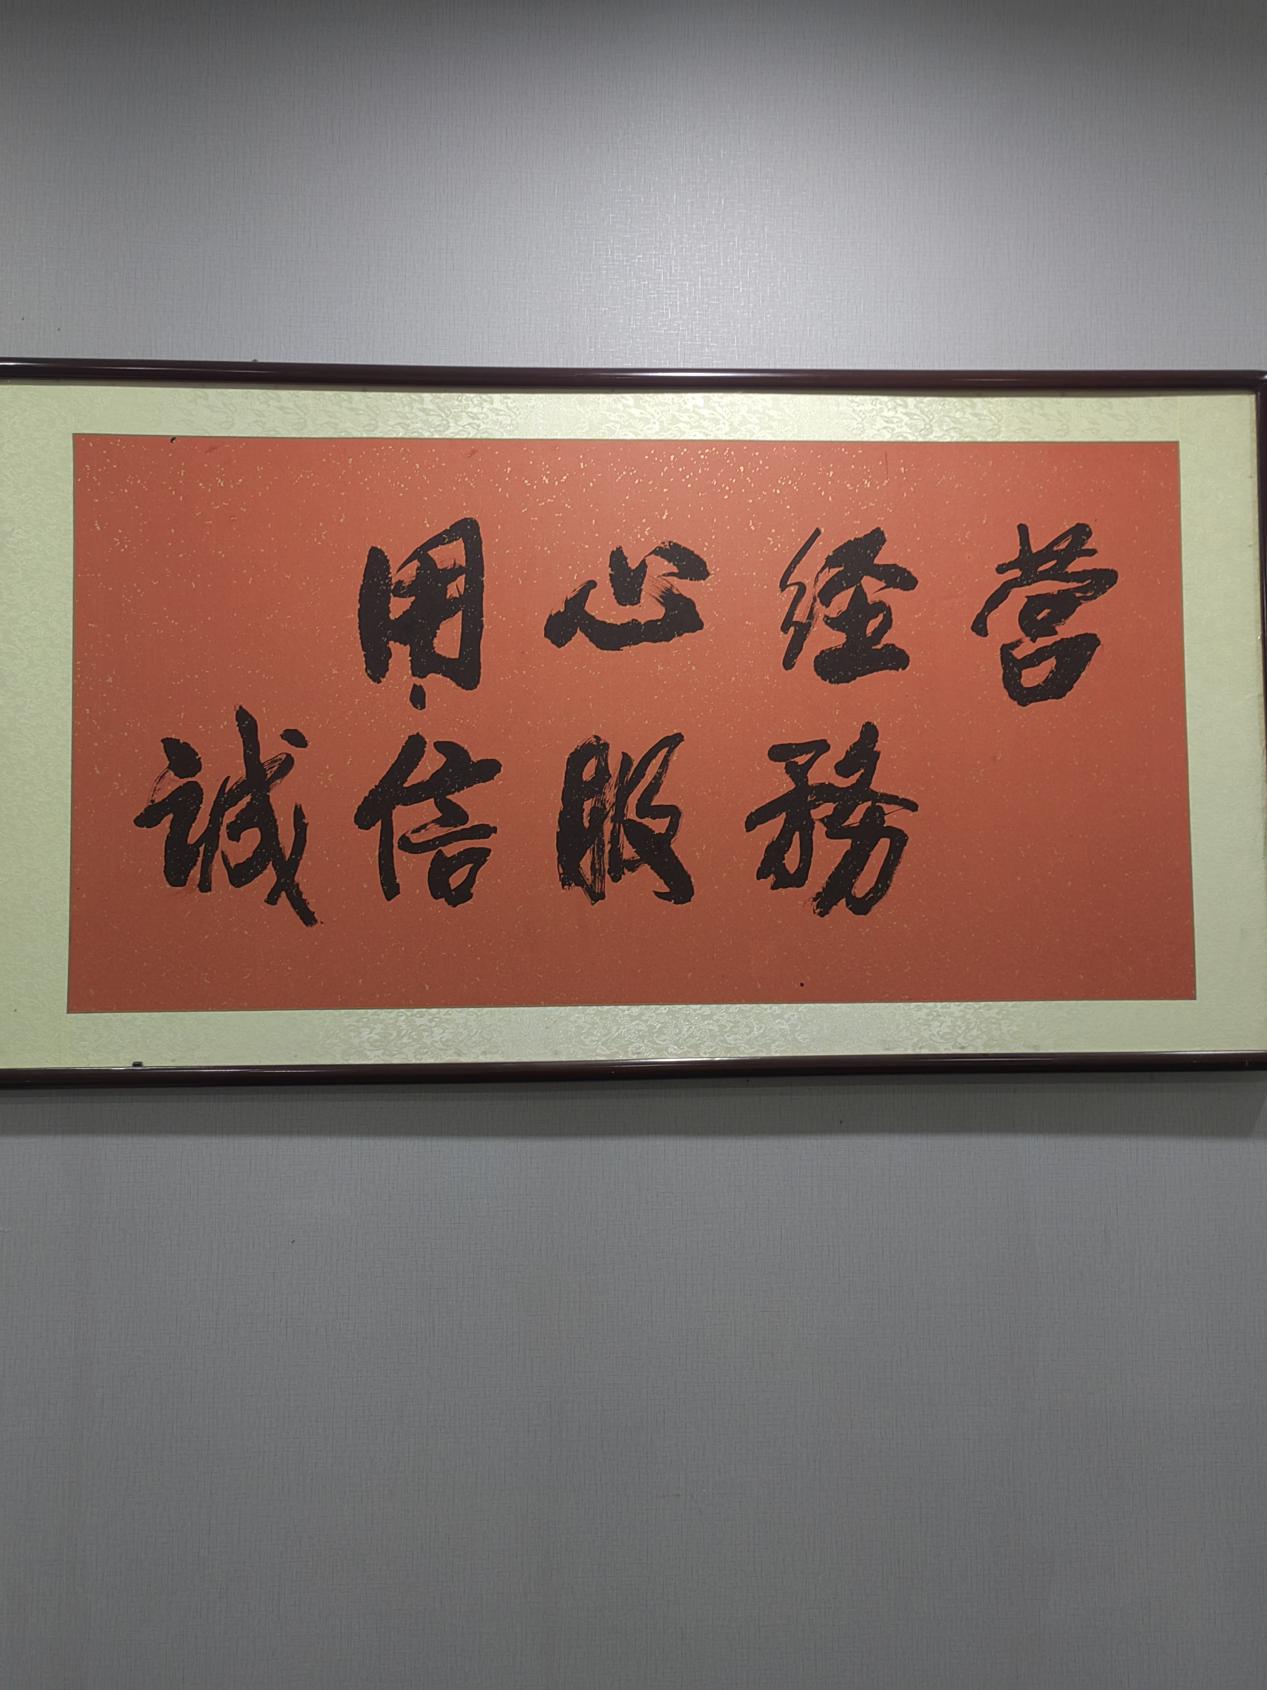 用心经营
誠信服務